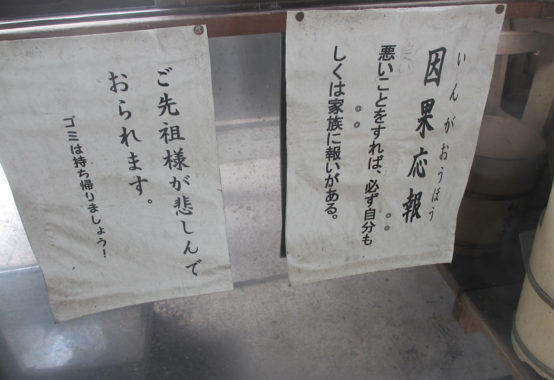 いんがおうほう
因果応報
悪いことをすれば、必ず自分も
しくは家族に報いがある。
ご先祖様が悲しんで
おられます。
ゴミは持ち帰りましょう！